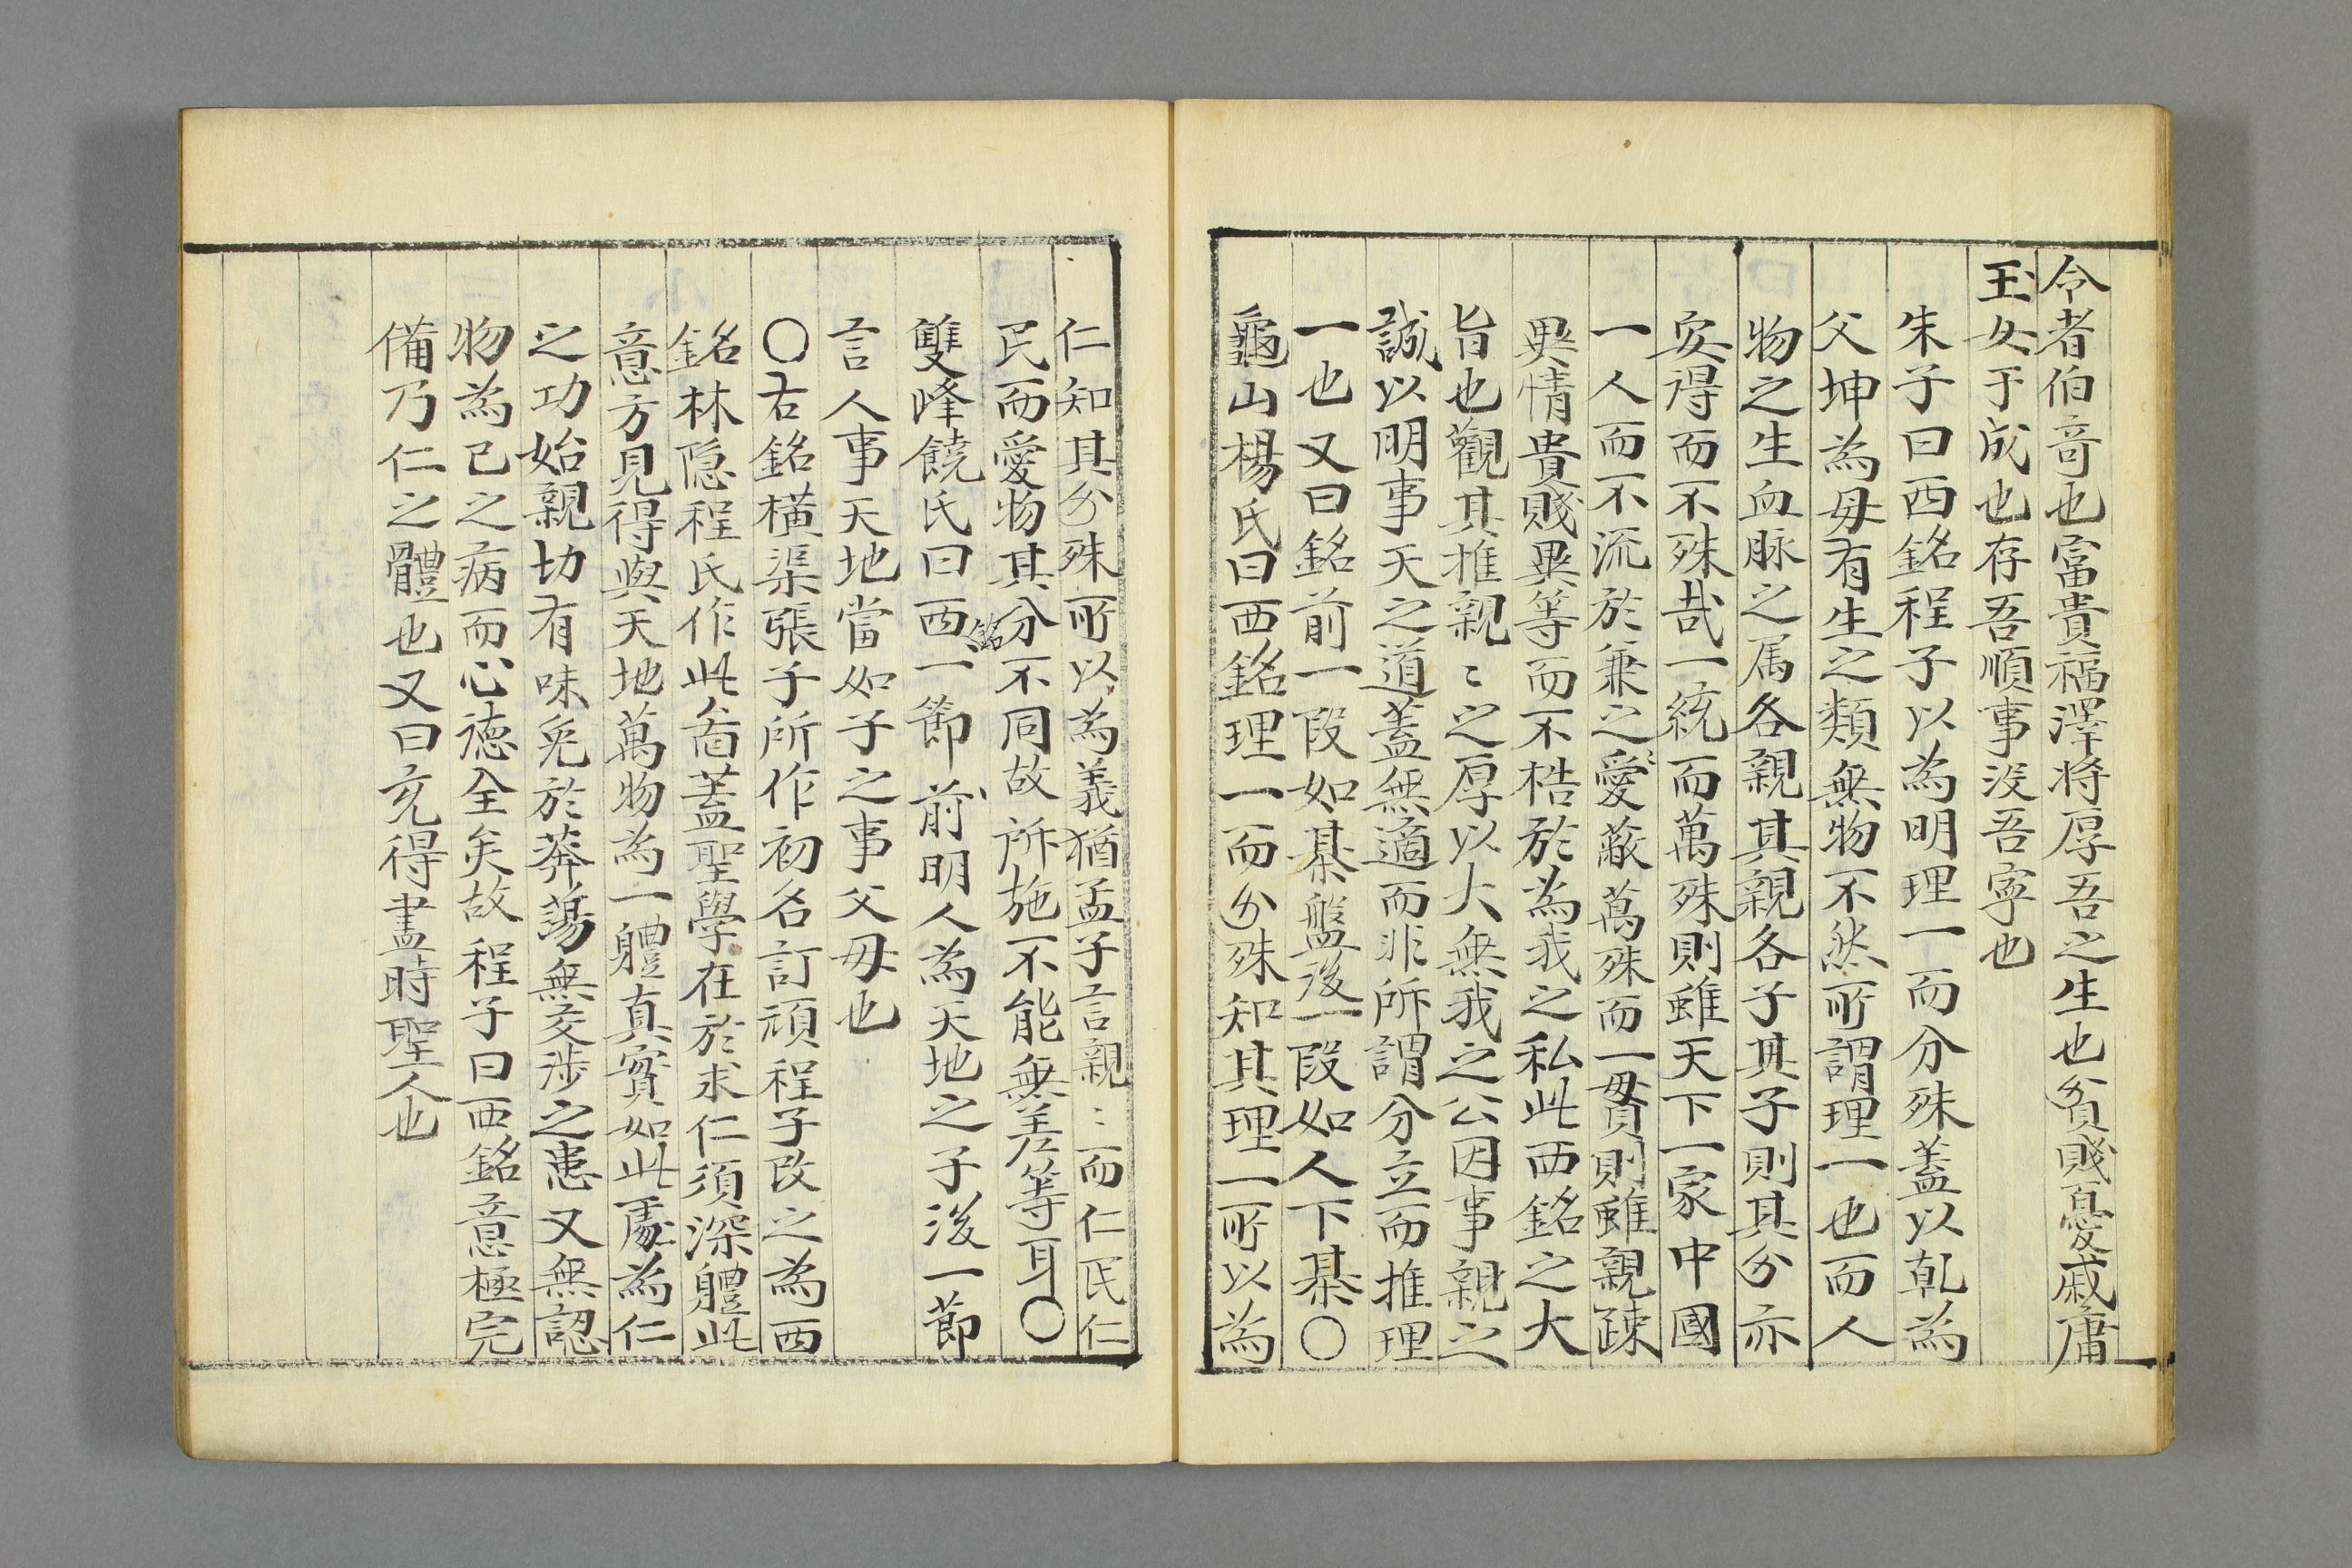 令者伯奇也富貴福澤將厚吾之生也貧賤憂戚庸
玉女于成也存吾順事沒吾寧也
朱子曰西銘程子以為明理一而分殊蓋以乾為
父坤為母有生之類無物不然所謂理一也而人
物之生血脉之属各親其親各子其子則其分亦
安得而不殊哉一統而萬殊則雖天下一家中國
一人而不流於兼之愛蔽萬殊而一貫則雖親疎
異情貴賤異等而不梏於為我之私此西銘之大
旨也觀其推親〻之厚以大無我之公因事親之
誠以明事天之道蓋無適而非所謂分立而推理
一也又曰銘前一段如棊盤後一段如人下棊〇
龜山楊氏曰西銘理一而分殊知其理一所以為
仁知其分殊所以為義猶孟子言親〻而仁民仁
民而愛物其分不同故所施不能無差等耳〇
雙峰饒氏曰西銘一節前明人為天地之子後一節
言人事天地當如子之事父母也
〇右銘橫渠張子所作初名訂頑程子改之為西
銘林隱程氏作此啚蓋聖學在於求仁須深體此
意方見得與天地萬物為一體真實如此處為仁
之功始親切有味免於莽蕩無交涉之患又無認
物為己之病而心德全矣故程子曰西銘意極完
備乃仁之體也又曰充得盡時聖人也